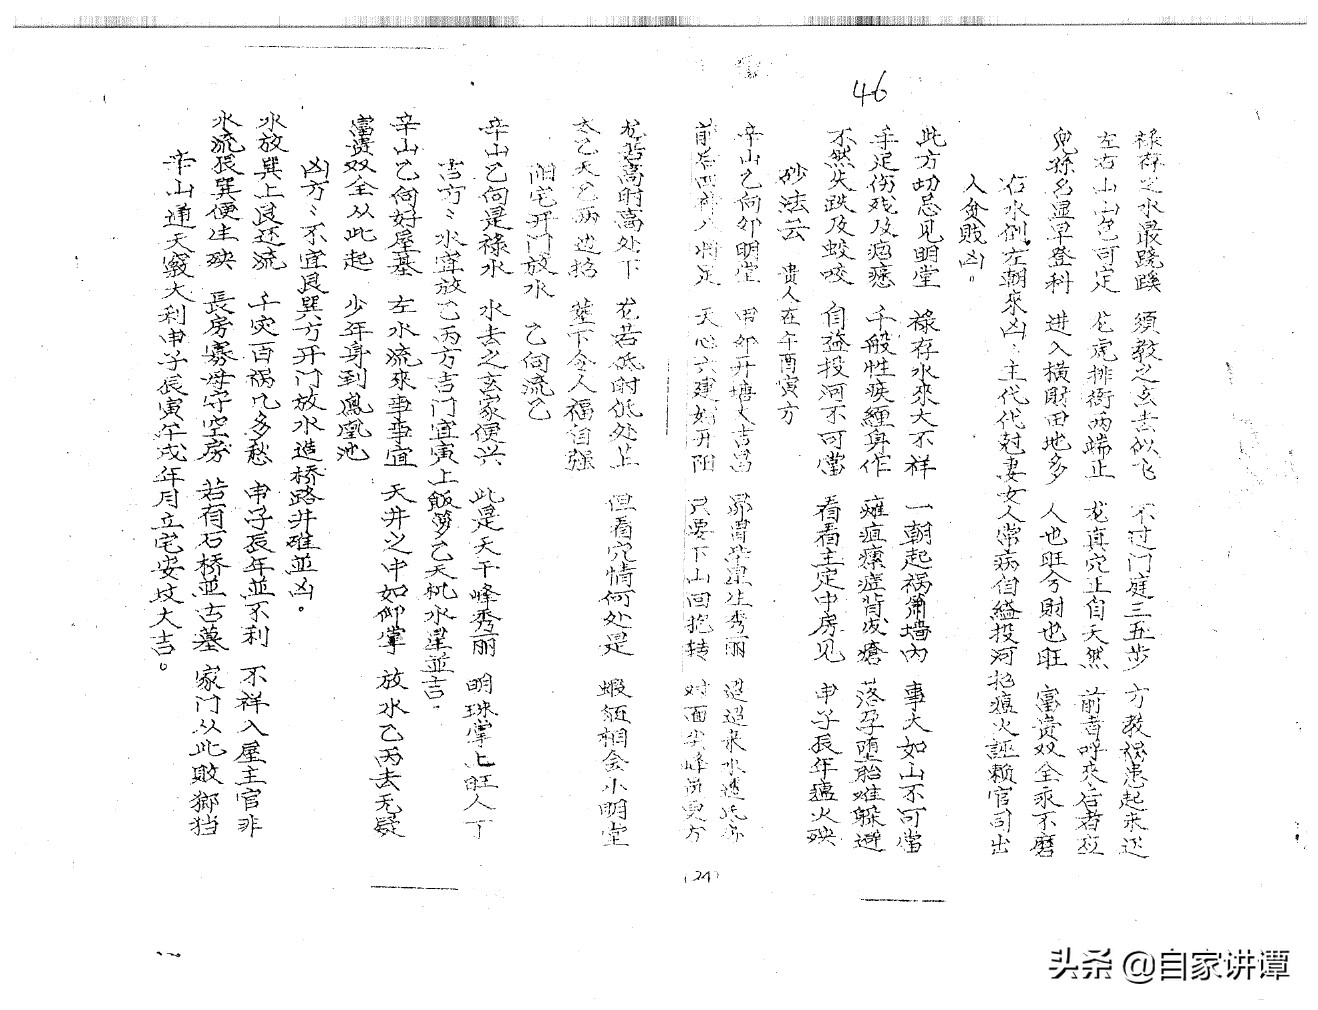 46
禄存之水最跷蹊 须教之玄去似飞 不过门庭三五步 方教祸患起来迟
左右山山包可定 龙虎排衙两端止 龙真穴正自天然 前者呼来后者应
兒孫名显早登科 进入横財田地多 人也旺兮財也旺 富貴双全永不磨
右水倒左朝來凶:主代代尅妻女人常病自縊投河犯瘟火誣賴官司出
人贫敗凶。
此方切忌见明堂 祿存水來大不祥 一朝起祸萧墙內 事大如山不可當
手足伤残及 千般性疾纏身作 癰疽瘰 背发瘡 落孕堕胎难躲避
不然失跌及蛟咬 自縊投河不可當 看看主定中房见 申子辰年瘟火殃
砂法云 贵人在午酉寅方
辛山乙向卯明堂 甲卯开塘大吉昌 秀丽 迢迢来水
前后四 八将足 天心六建如开阳 只要下山回抱转 对面尖峰
龙若高时高处下 龙若低时低处上 但看穴情何处是 蝦 相会小明堂
太乙天乙两边 塟下令人福自强
阳宅开门放水 乙向流乙
辛山乙向是祿水 水去之玄家便兴 此是天干峰秀丽 明珠掌上旺人丁
吉方:水宜放乙丙方吉门宜寅上飯箩乙天机水星並吉。
辛山乙向好屋基 左水流來事事宜 天井之中如仰掌 放水乙丙去无疑
富貴双全从此起 少年身到鳳凰池
凶方:不宜艮巽方开门放水造桥路井碓並凶。
水放巽上艮还流 千灾百祸几多愁 申子辰年並不利 不祥入屋主官非
水流艮巽便生殃 長房寡母守空房 若有石桥並古墓 家门从此敗鄉
辛山通天竅大利申子辰寅午戌年月立宅安坟大吉。
(24)
头条 @自家讲谭